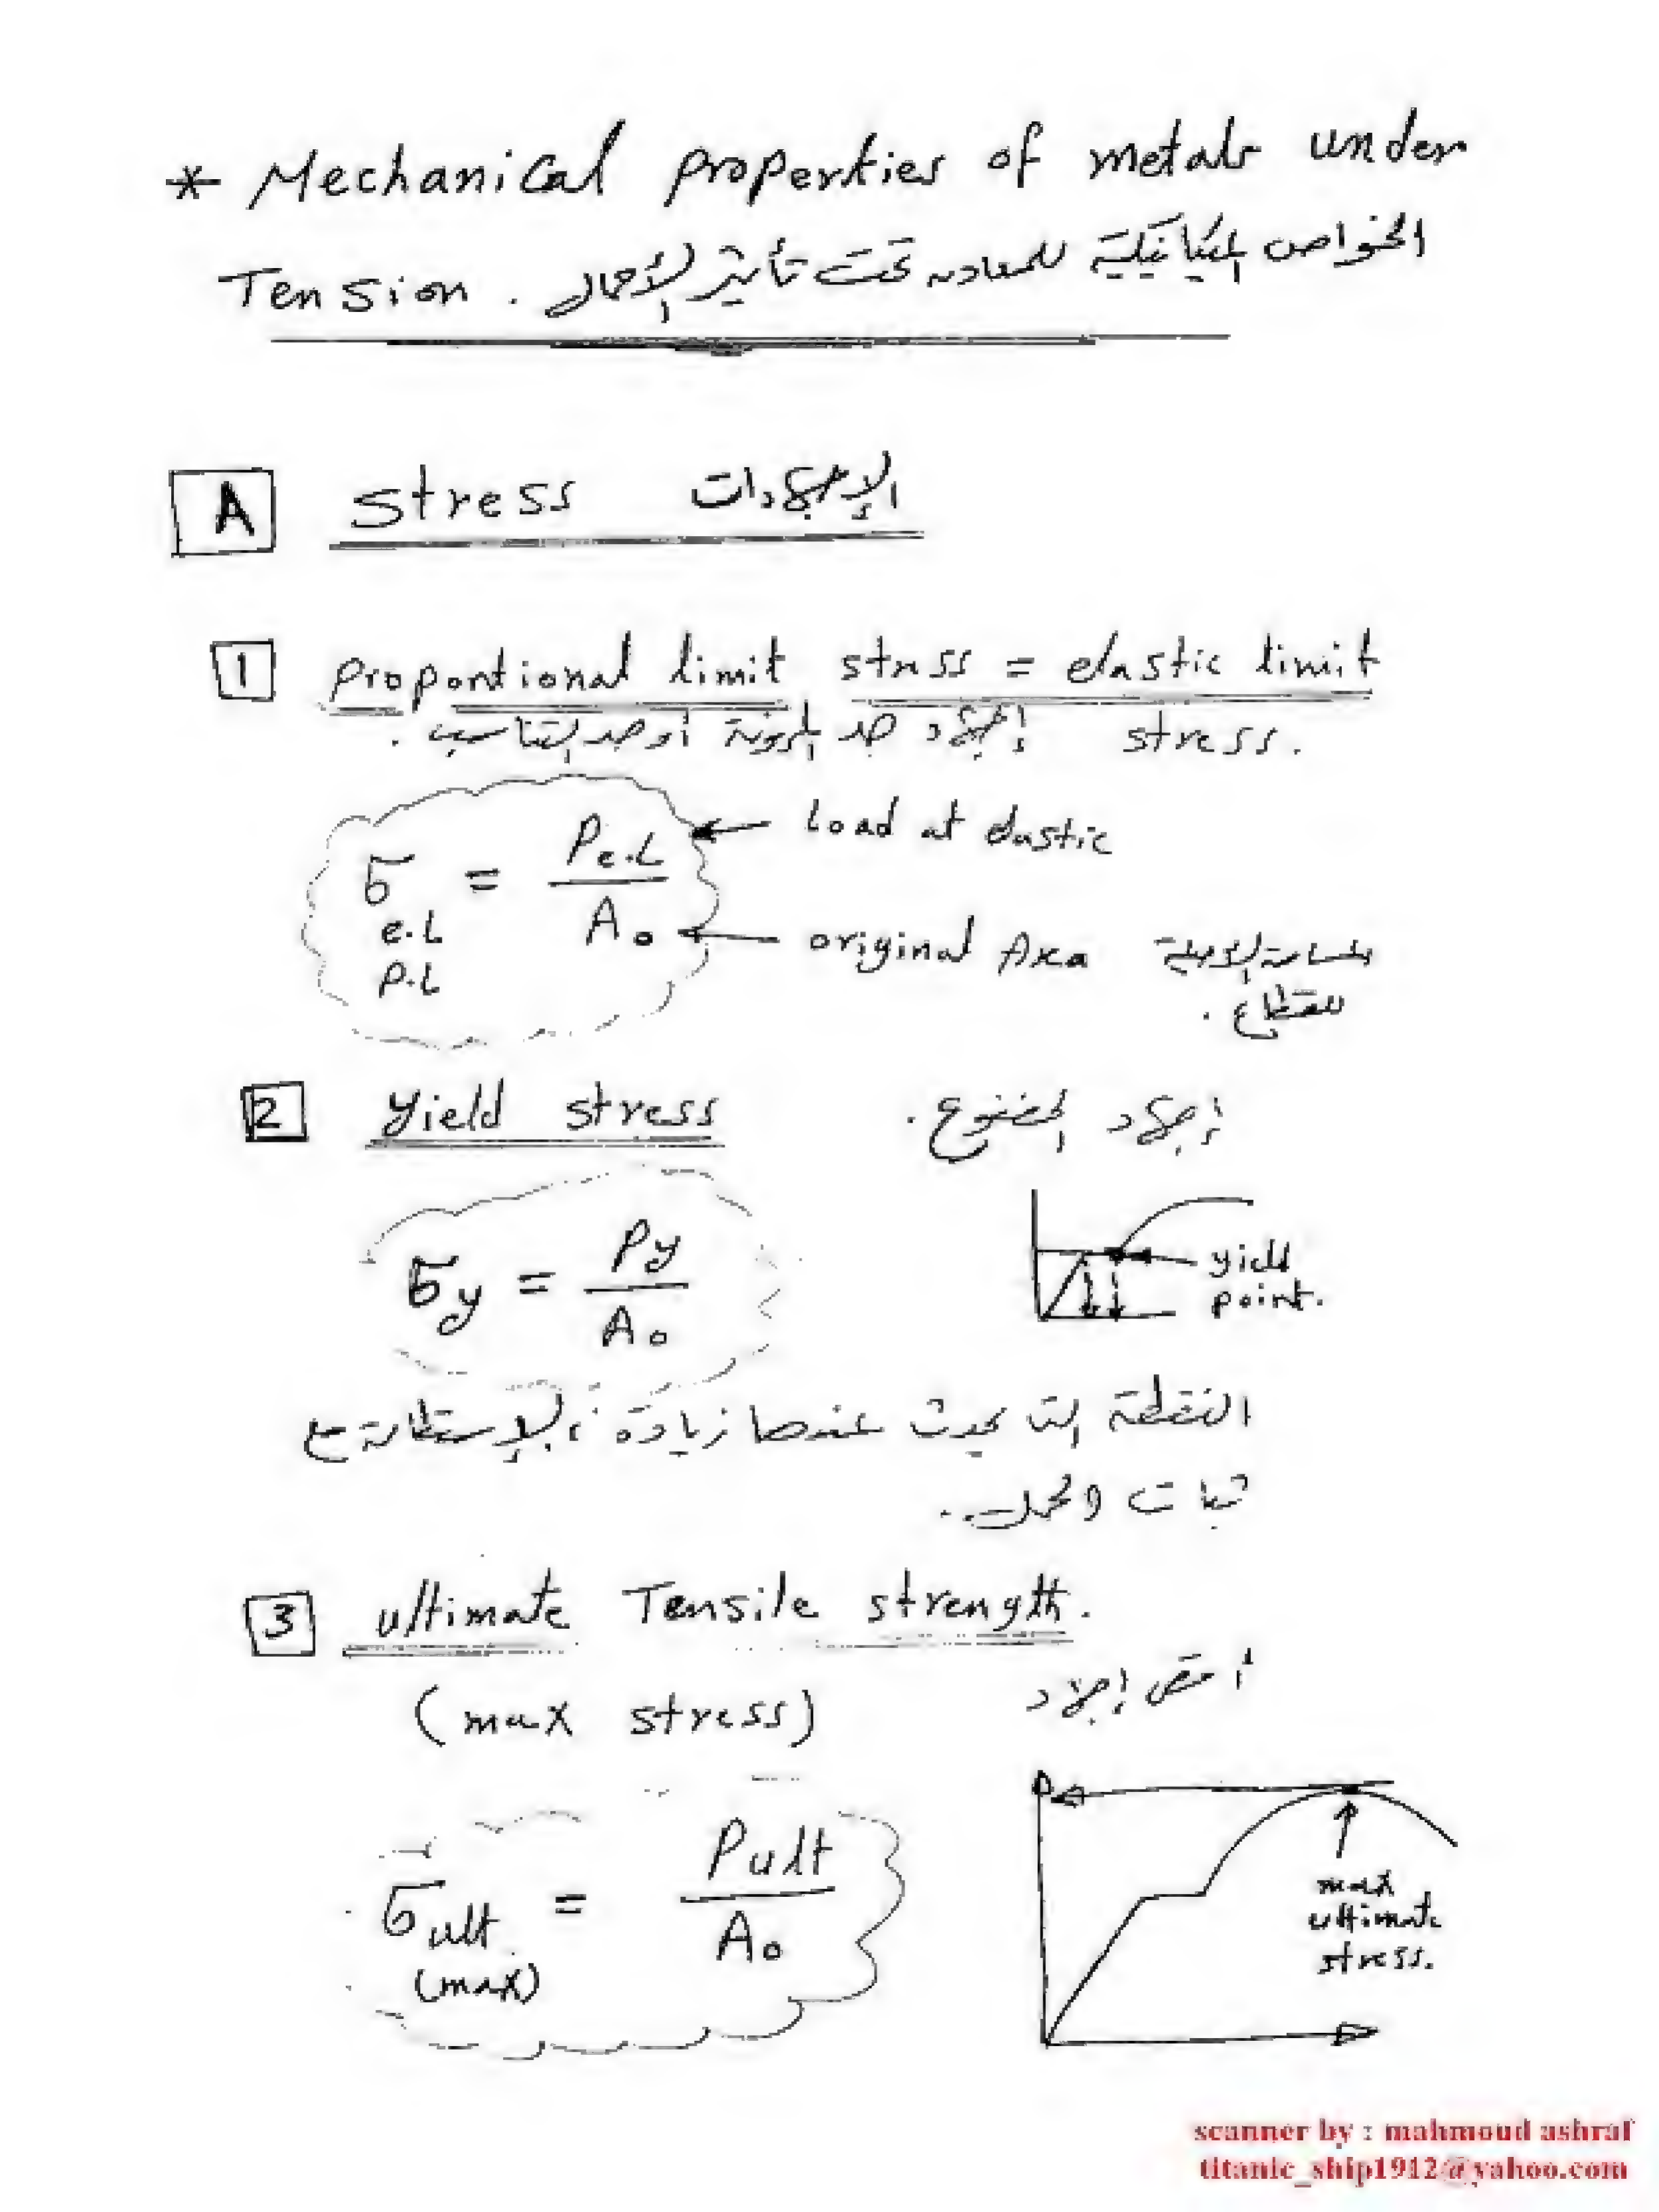 * Mechanical properties of metals under
الخواص الميكانيكية للمعادن تحت تأثير الأحمال
Tension .
A stress الإجهادات
1 proportional limit stress = elastic limit
stress. إجهاد حد المرونة أو حد التناسب .
σ e.L P.L = Pe.L / A₀
← Load at elastic
← original Area المساحة الأصلية
للقطاع .
2 yield stress إجهاد الخضوع .
σy = Py / A₀
yield
point.
النقطة التى يحدث عندها زيادة فى الإستطالة مع
ثبات الحمل .
3 ultimate Tensile strength.
(max stress) أقصى إجهاد
σult (max) = Pult / A₀
max
ultimate
stress.
scanner by : mahmoud ashraf
titanic_ship1912@yahoo.com